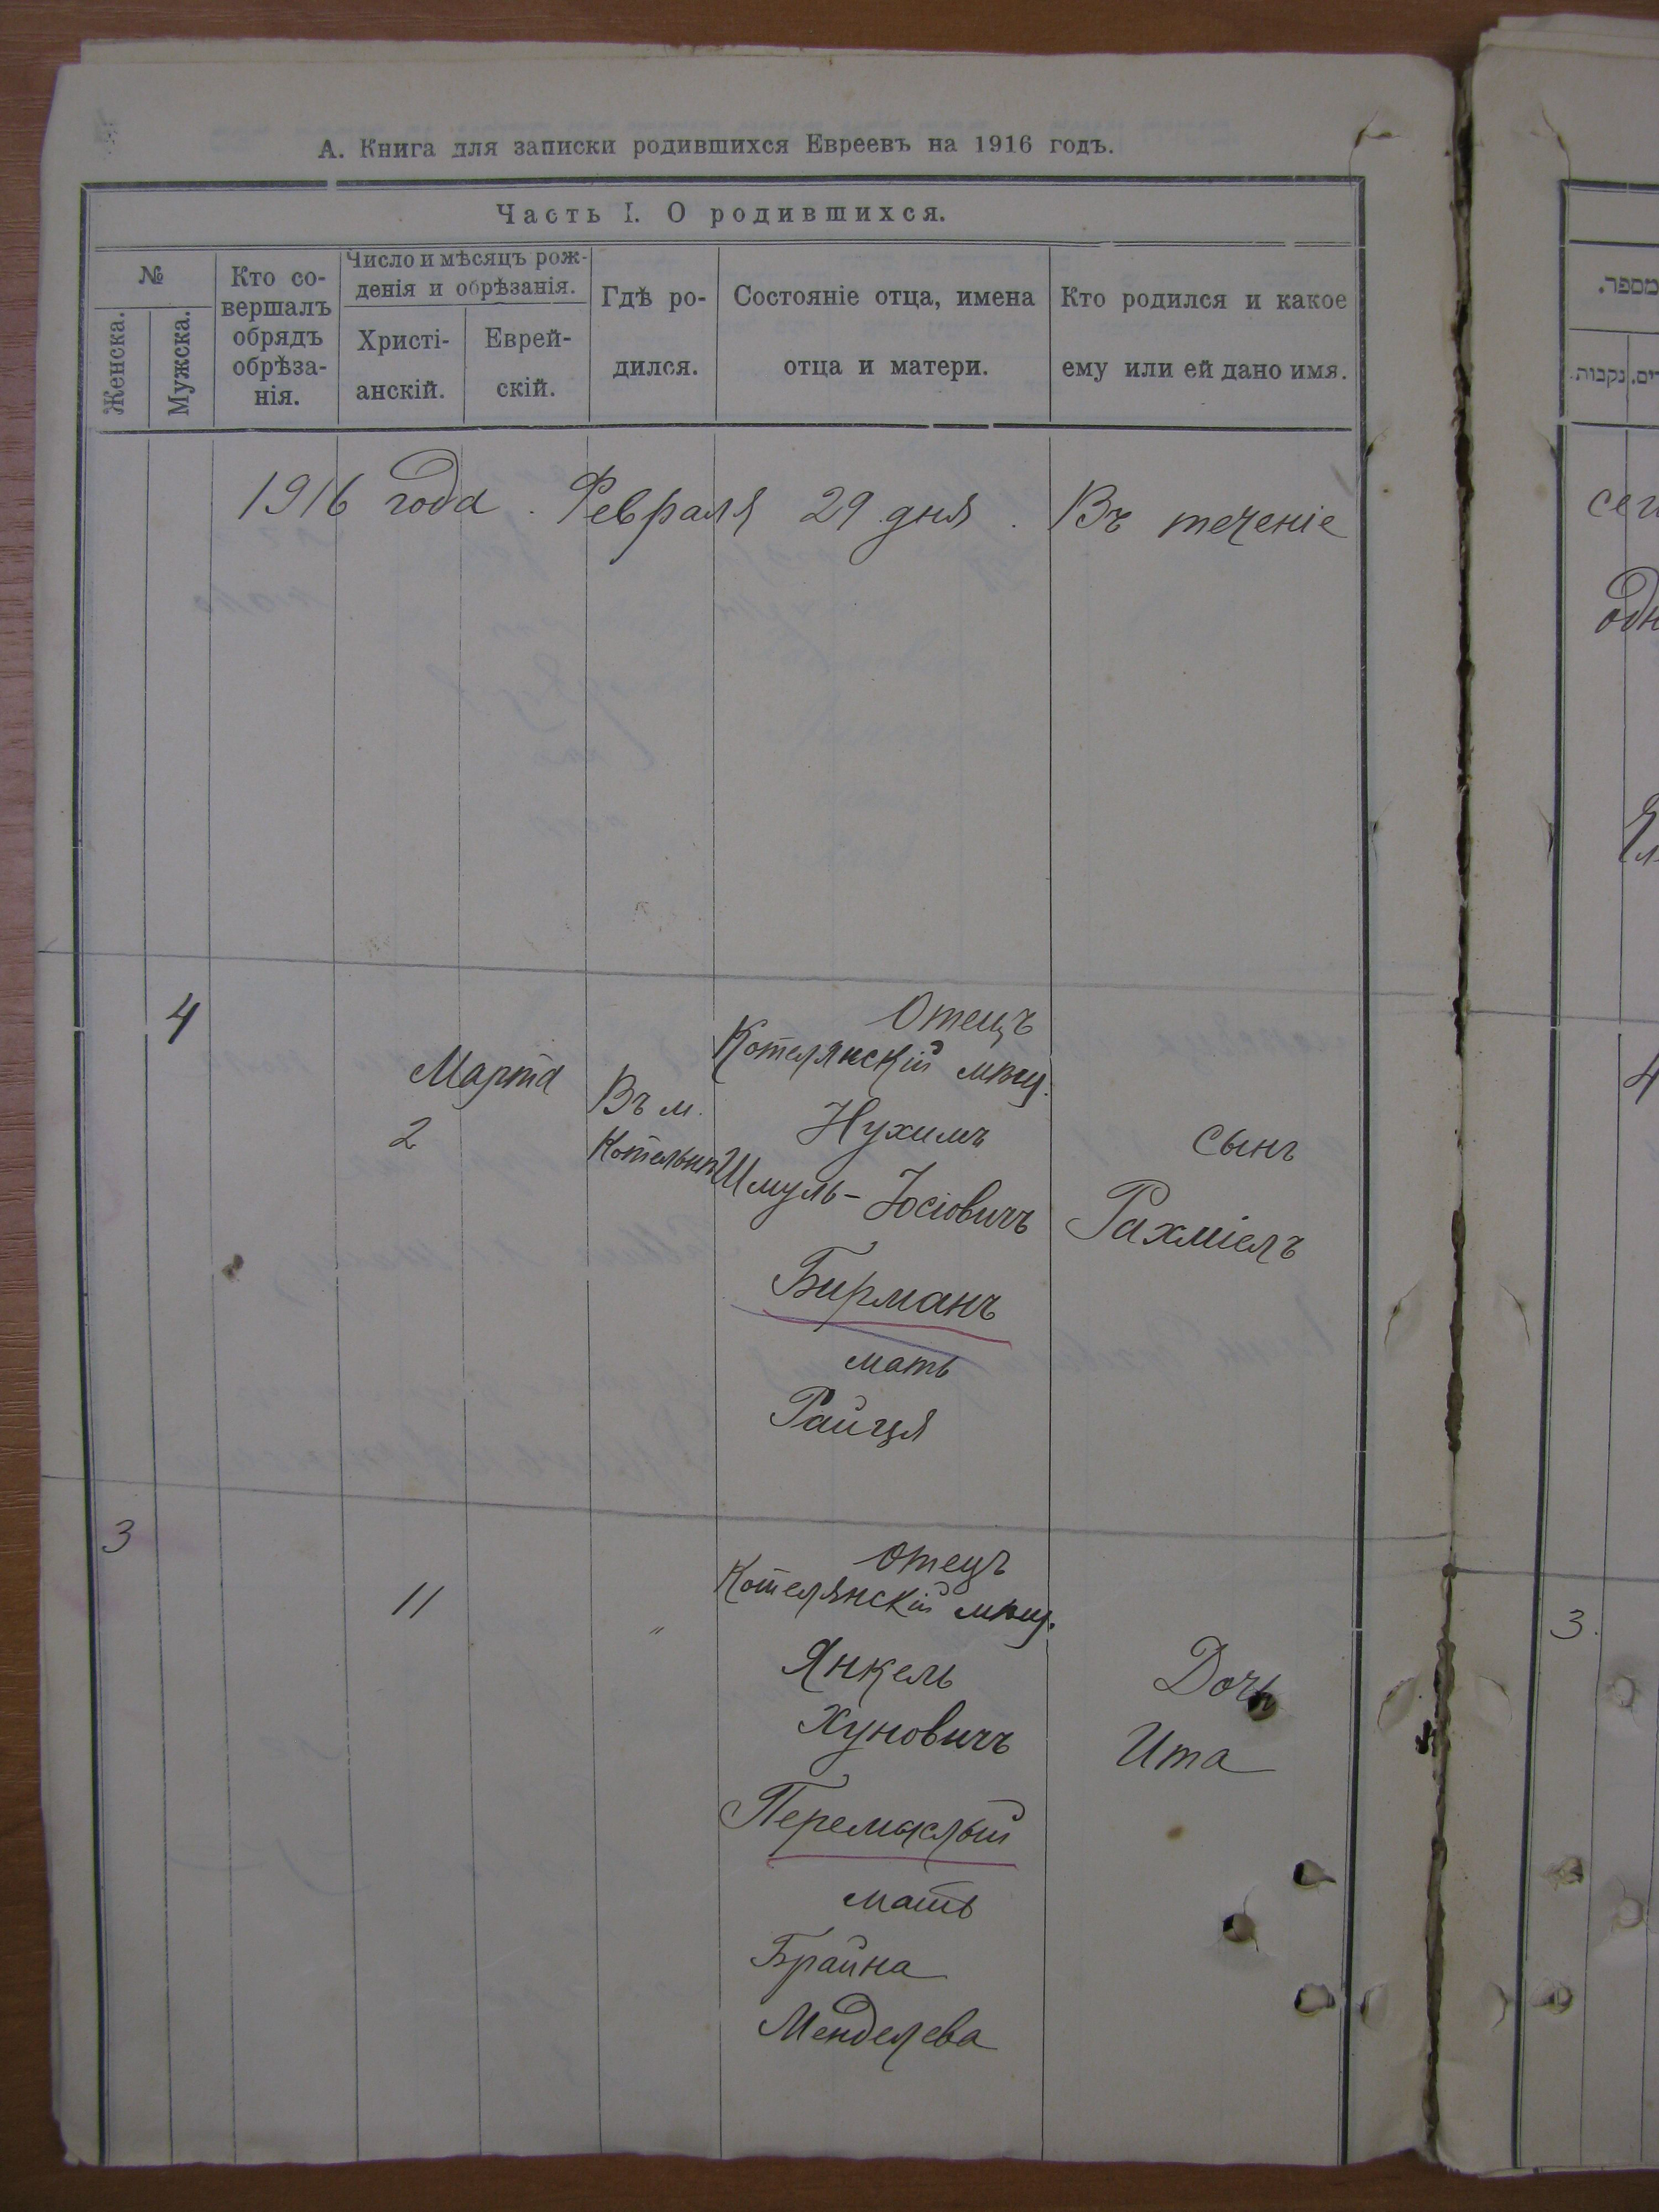 А. Книга для записки родившихся Евреевъ на 1916 годъ.
Часть I. О родившихся.
№
Женска.
Мужска.
Кто со-
вершалъ
обрядъ
обрѣза-
нія.
Число и мѣсяцъ рож-
денія и обрѣзанія.
Христі-
анскій.
Еврей-
скій.
Гдѣ ро-
дился.
Состояніе отца, имена
отца и матери.
Кто родился и какое
ему или ей дано имя.
1916 года. Февраля 29 дня. Въ теченіе
4
Марта
2
Въ м.
Котельнѣ
Отецъ
Котелянскій мѣщ.
Нухимъ
Шмуль-Іосіовичъ
Бирманъ
мать
Райця
сынъ
Рахміелъ
3
11
"
Отецъ
Котелянскій мѣщ.
Янкель
Хуновичъ
Перемыслый
мать
Брайна
Менделева
Дочь
Ита
מספר.
נקבות.
4
3.